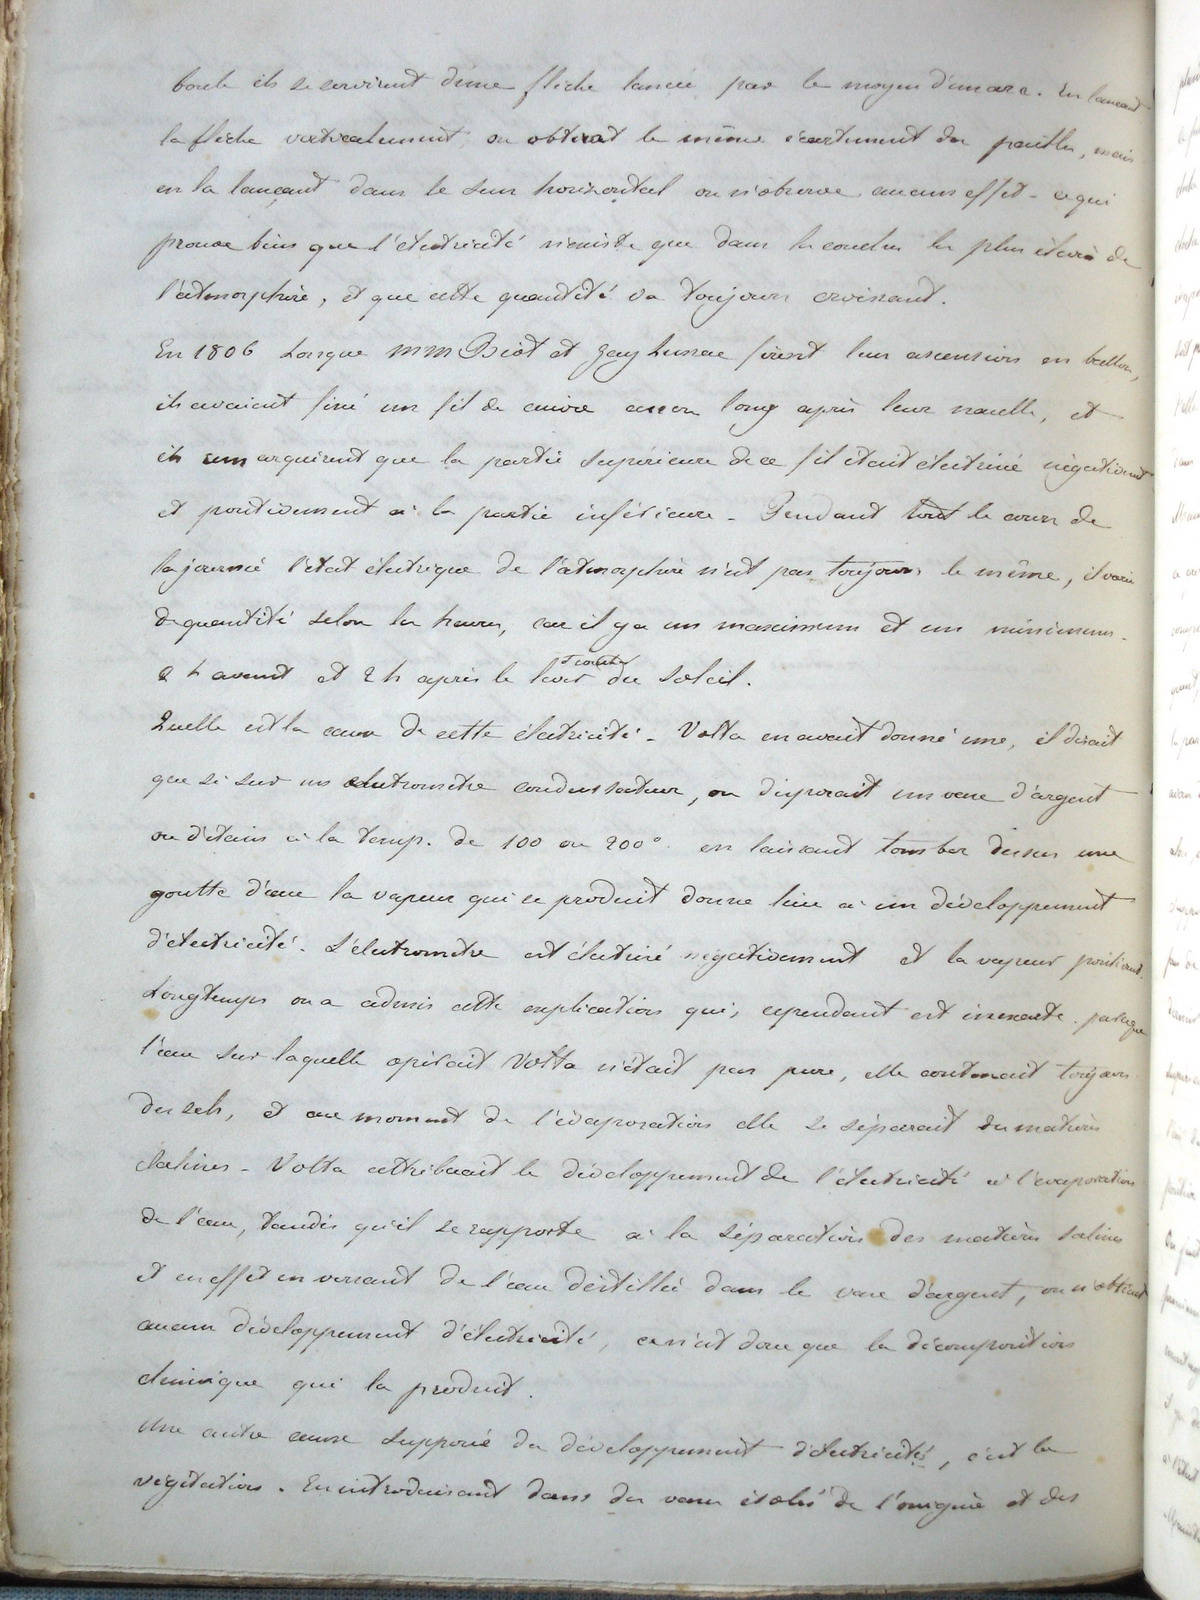 boule ils se servirent d'une flèche lancée par le moyen d'un arc. En lancant
la flèche verticalement on obtient le même écartement des pailles, mais
en la lançant dans le sens horizontal on n'observe aucun effet - ce qui
prouve bien que l'électricité n'existe que dans les couches les plus élevés de
l'atmosphère, et que cette quantité va toujours croissant.
En 1806 Lorsque MM Biot et Gay Lussac firent leur ascension en ballon,
ils avaient fixé un fil de cuivre assez long après leur nacelle, et
ils remarquèrent que la partie supérieure de ce fil était électrisé négativement
et positivement à la partie inférieure - Pendant tout le cours de
la journée l'état électrique de l'atmosphère n'est pas toujours le même, il varie
de quantité selon les heures, car il y a un maximum et un minimum.
2 h avant et 2 h après le lever du soleil.
Quelle est la cause de cette électricité - Volta en avait donné une, il disait
que si sur un électromètre condensateur, on disposait un vase d'argent
ou d'étain à la temp. de 100 ou 200° en laissant tomber dessus une
goutte d'eau la vapeur qui se produit donne lieu à un développement
d'électricité. L'électromètre est électrisé négativement et la vapeur positivemt.
Longtemps on a admis cette explication qui, cependant est inexacte. parceque
l'eau sur laquelle opérait Volta n'était pas pure, elle contenait toujours
des sels, et au moment de l'évaporation elle se séparait des matières
salines - Volta attribuait le développement de l'électricité à l'évaporation
de l'eau, tandis qu'il se rapporte à la séparation des matières salines
et en effet en versant de l'eau distillée dans le vase d'argent, on n'obtient
aucun développement d'électricité, ce n'est donc que la décomposition
chimique qui la produit.
Une autre cause supposée du développement d'électricité, c'est la
végétation. En introduisant dans des vases isolés de l'oxigène et des